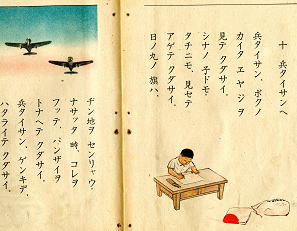 十 兵タイサンヘ
兵タイサン、ボクノ
カイタ エヤ ジヲ
見テ クダサイ。
シナノ 子ドモ
タチニモ、見セテ
アゲテ クダサイ。
日ノ丸ノ 旗ハ、
ヂン地ヲ センリャウ
ナサッタ 時、コレヲ
フッテ、バンザイヲ
トナヘテ クダサイ。
兵タイサン、ゲンキデ、
ハタライテ クダサイ。